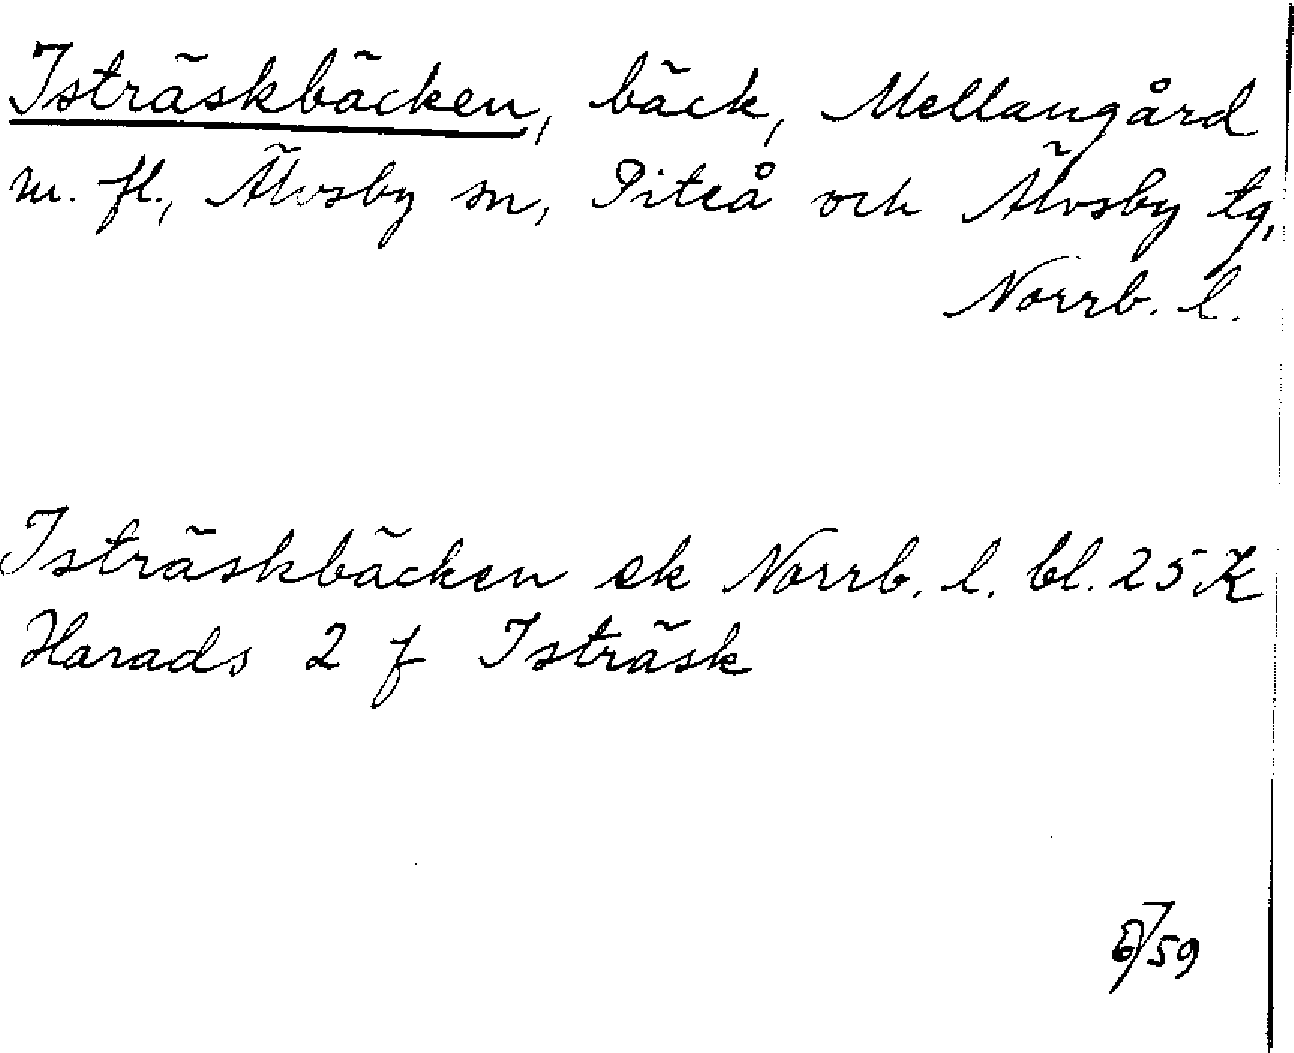 Isträskbäcken, bäck, Mellangård
m. fl., Älvsby sn, Piteå och Älvsby tg,
Norrb. l.
Isträskbäcken ek Norrb. l. bl. 25 K
Harads 2 f Isträsk
59